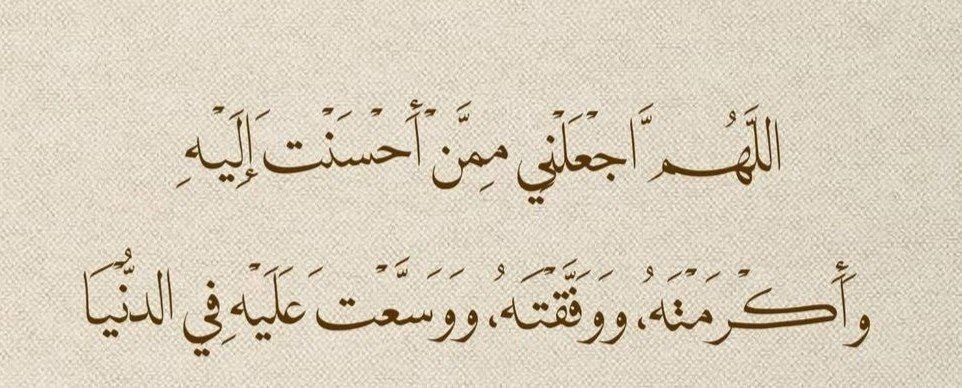 اللَّهُمَّ اجْعَلْنِي مِمَّنْ أَحْسَنْتَ إِلَيْهِ
وَأَكْرَمْتَهُ، وَوَفَّقْتَهُ، وَوَسَّعْتَ عَلَيْهِ فِي الدُّنْيَا